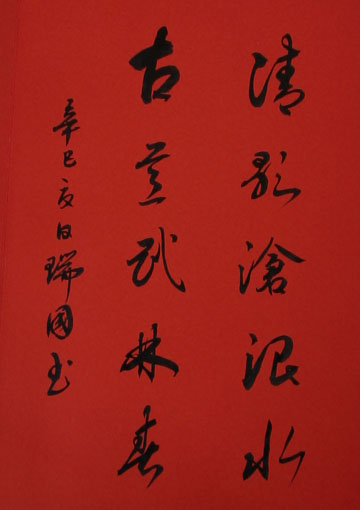 清影滄浪水
古意武林春
辛巳夏日瑞國书